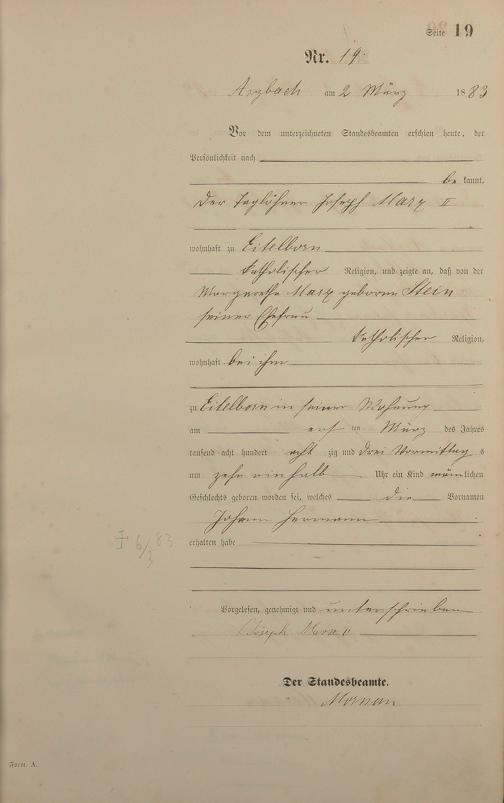 Seite 19
Nr. 19.
Arzbach am 2 März 1883
Vor dem unterzeichneten Standesbeamten erschien heute, der
Persönlichkeit nach
be kannt,
der Taglöhner Joseph Marx II
wohnhaft zu Eitelborn
katholischer Religion, und zeigte an, daß von der
Margarethe Marx geborene Stein
seiner Ehefrau
katholischer Religion,
wohnhaft bei ihm
zu Eitelborn in seiner Wohnung
am ersten März des Jahres
tausend acht hundert acht zig und drei Vormittags
um zehn ein halb Uhr ein Kind männlichen
Geschlechts geboren worden sei, welches die Vornamen
Johann Hermann
erhalten habe
† 6/3 83
Vorgelesen, genehmigt und unterschrieben
Joseph Marx II
Der Standesbeamte.
Form. A.